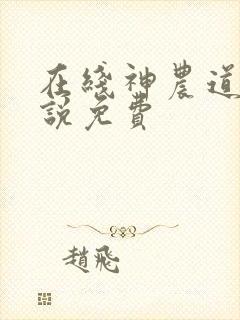 在綫神農道
説免費
趙飛